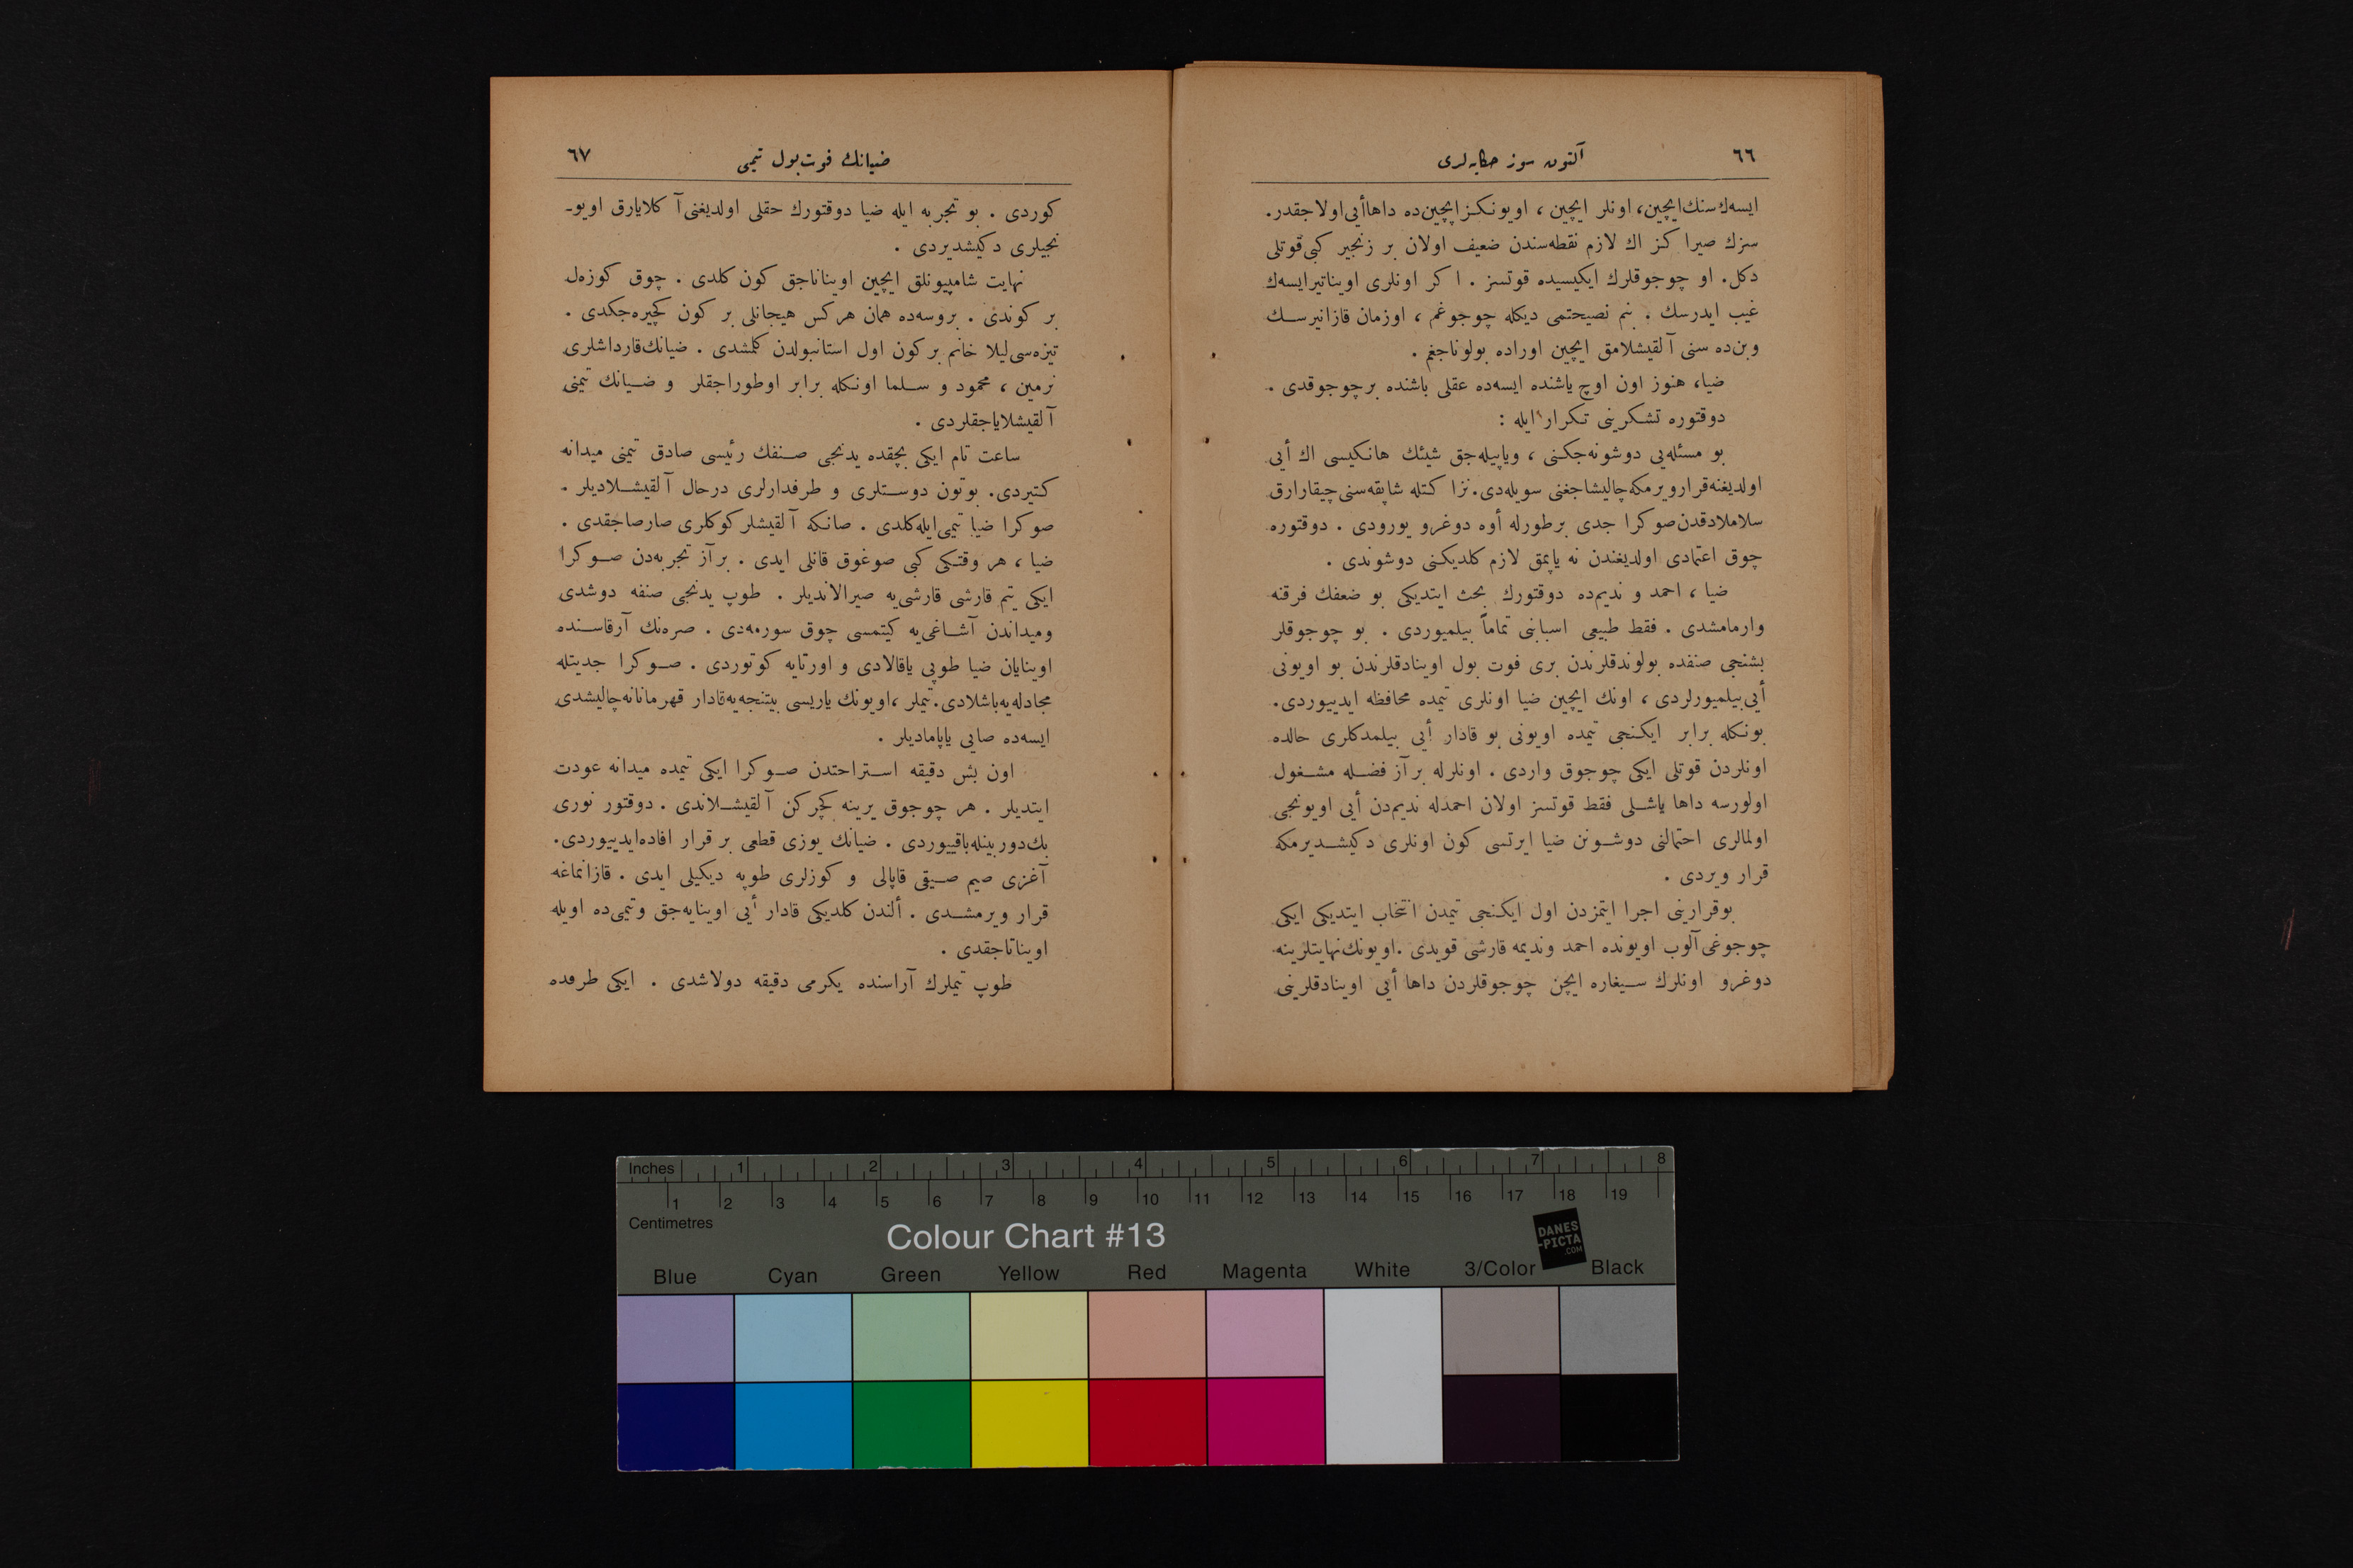 ٦٦ آلتون سوز حكايه‌لری
ايسه‌ك سنك ايچين، اونلر ايچين ، اويونكز ايچين‌ده داها أيی اولاجقدر.
سزك صيرا كز اك لازم نقطه‌سندن ضعيف اولان بر زنجير كبی قوتلی
دكل. او چوجوقلرك ايكيسيده قوتسز . ا كر اونلری اويناتيرايسه‌ك
غيب ايدرسك . بنم نصيحتمی ديكله چوجوغم ، اوزمان قازانيرسك
وبن‌ده سنی آلقيشلامق ايچين اوراده بولوناجغم .
ضيا، هنوز اون اوچ ياشنده ايسه‌ده عقلی باشنده برچوجوقدی .
دوقتوره تشكرينی تكرار ايله :
بو مسئله‌يی دوشونه‌جكنی ، وياپيله‌جق شيئك هانكيسی اك أيی
اولديغنه قرارويرمكه چاليشاجغنی سويله‌دی. نزا كتله شاپقه‌سنی چيقارارق
سلاملادقدن صوكرا جدی برطورله أوه دوغرو يورودی . دوقتوره
چوق اعتمادی اولديغندن نه ياپمق لازم كلديكنی دوشوندی .
ضيا ، احمد و نديم‌ده دوقتورك بحث ايتديكی بو ضعفك فرقنه
وارمامشدی . فقط طبيعی اسبابنی تماماً بيلميوردی . بو چوجوقلر
بشنجی صنفده بولوندقلرندن بری فوت بول اوينادقلرندن بو اويونی
أيی بيلميورلردی ، اونك ايچين ضيا اونلری تيمده محافظه ايدييوردی.
بونكله برابر ايكنجی تيمده اويونی بو قادار أيی بيلمدكلری حالده
اونلردن قوتلی ايكی چوجوق واردی . اونلرله بر آز فضله مشغول
اولورسه داها ياشلی فقط قوتسز اولان احمدله نديم‌دن أيی اويونجی
اولمالری احتمالنی دوشونن ضيا ايرتسی كون اونلری دكيشديرمكه
قرار ويردی .
بوقرارينی اجرا ايتمزدن اول ايكنجی تيمدن انتخاب ايتديكی ايكی
چوجوغی آلوب اويونده احمد ونديمه قارشی قويدی . اويونك نهايتلرينه
دوغرو اونلرك سيغاره ايچن چوجوقلردن داها أيی اوينادقلرينی
ضيانك فوت‌بول تيمی ٦٧
كوردی . بو تجربه ايله ضيا دوقتورك حقلی اولديغنی آ كلايارق اويو-
نجيلری دكيشديردی .
نهايت شامپيونلق ايچين اويناناجق كون كلدی . چوق كوزه‌ل
بر كوندی . بروسه‌ده همان هركس هيجانلی بر كون كچيره‌جكدی .
تيزه‌سی ليلا خانم بر كون اول استانبولدن كلمشدی . ضيانك قارداشلری
نرمين ، محمود و سلما اونكله برابر اوطوراجقلر و ضيانك تيمنی
آلقيشلاياجقلردی .
ساعت تام ايكی بچقده يدنجی صنفك رئيسی صادق تيمنی ميدانه
كتيردی. بوتون دوستلری و طرفدارلری درحال آلقيشلاديلر .
صوكرا ضيا تيمی ايله كلدی . صانكه آلقيشلر كوكلری صارصاجقدی .
ضيا ، هر وقتكی كبی صوغوق قانلی ايدی . بر آز تجربه‌دن صوكرا
ايكی تيم قارشی قارشی‌يه صيرالانديلر . طوپ يدنجی صنفه دوشدی
وميداندن آشاغی‌يه كيتمسی چوق سورمه‌دی . صره‌نك آرقاسنده
اوينايان ضيا طوپی ياقالادی و اورتايه كوتوردی . صوكرا جديتله
مجادله‌يه باشلادی. تيملر ، اويونك ياريسی بيتنجه‌يه قادار قهرمانانه چاليشدی
ايسه‌ده صايی ياپاماديلر .
اون بش دقيقه استراحتدن صوكرا ايكی تيمده ميدانه عودت
ايتديلر . هر چوجوق يرينه كچركن آلقيشلاندی . دوقتور نوری
بك دوربينله باقييوردی . ضيانك يوزی قطعی بر قرار افاده ايدييوردی.
آغزی صيم صيقی قاپالی و كوزلری طوپه ديكيلی ايدی . قازانماغه
قرار ويرمشدی . ألندن كلديكی قادار أيی اوينايه‌جق وتيمی‌ده اويله
اويناتاجقدی .
طوپ تيملرك آراسنده يكرمی دقيقه دولاشدی . ايكی طرفده
Inches 1 2 3 4 5 6 7 8
1 2 3 4 5 6 7 8 9 10 11 12 13 14 15 16 17 18 19
Centimetres
Colour Chart #13
DANES
-PICTA
.COM
Blue Cyan Green Yellow Red Magenta White 3/Color Black